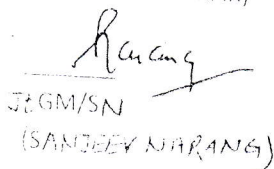 Narang
Jt GM/SN
(SANJEEV NARANG)